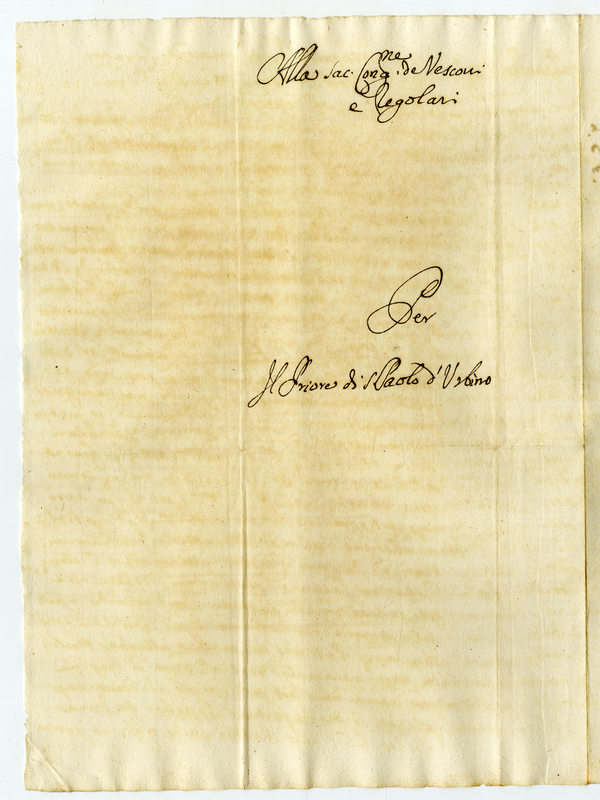 Alla sac. Cong.ne de Vescoui
e Regolari
Per
Il Priore di S Paolo d'Urbino